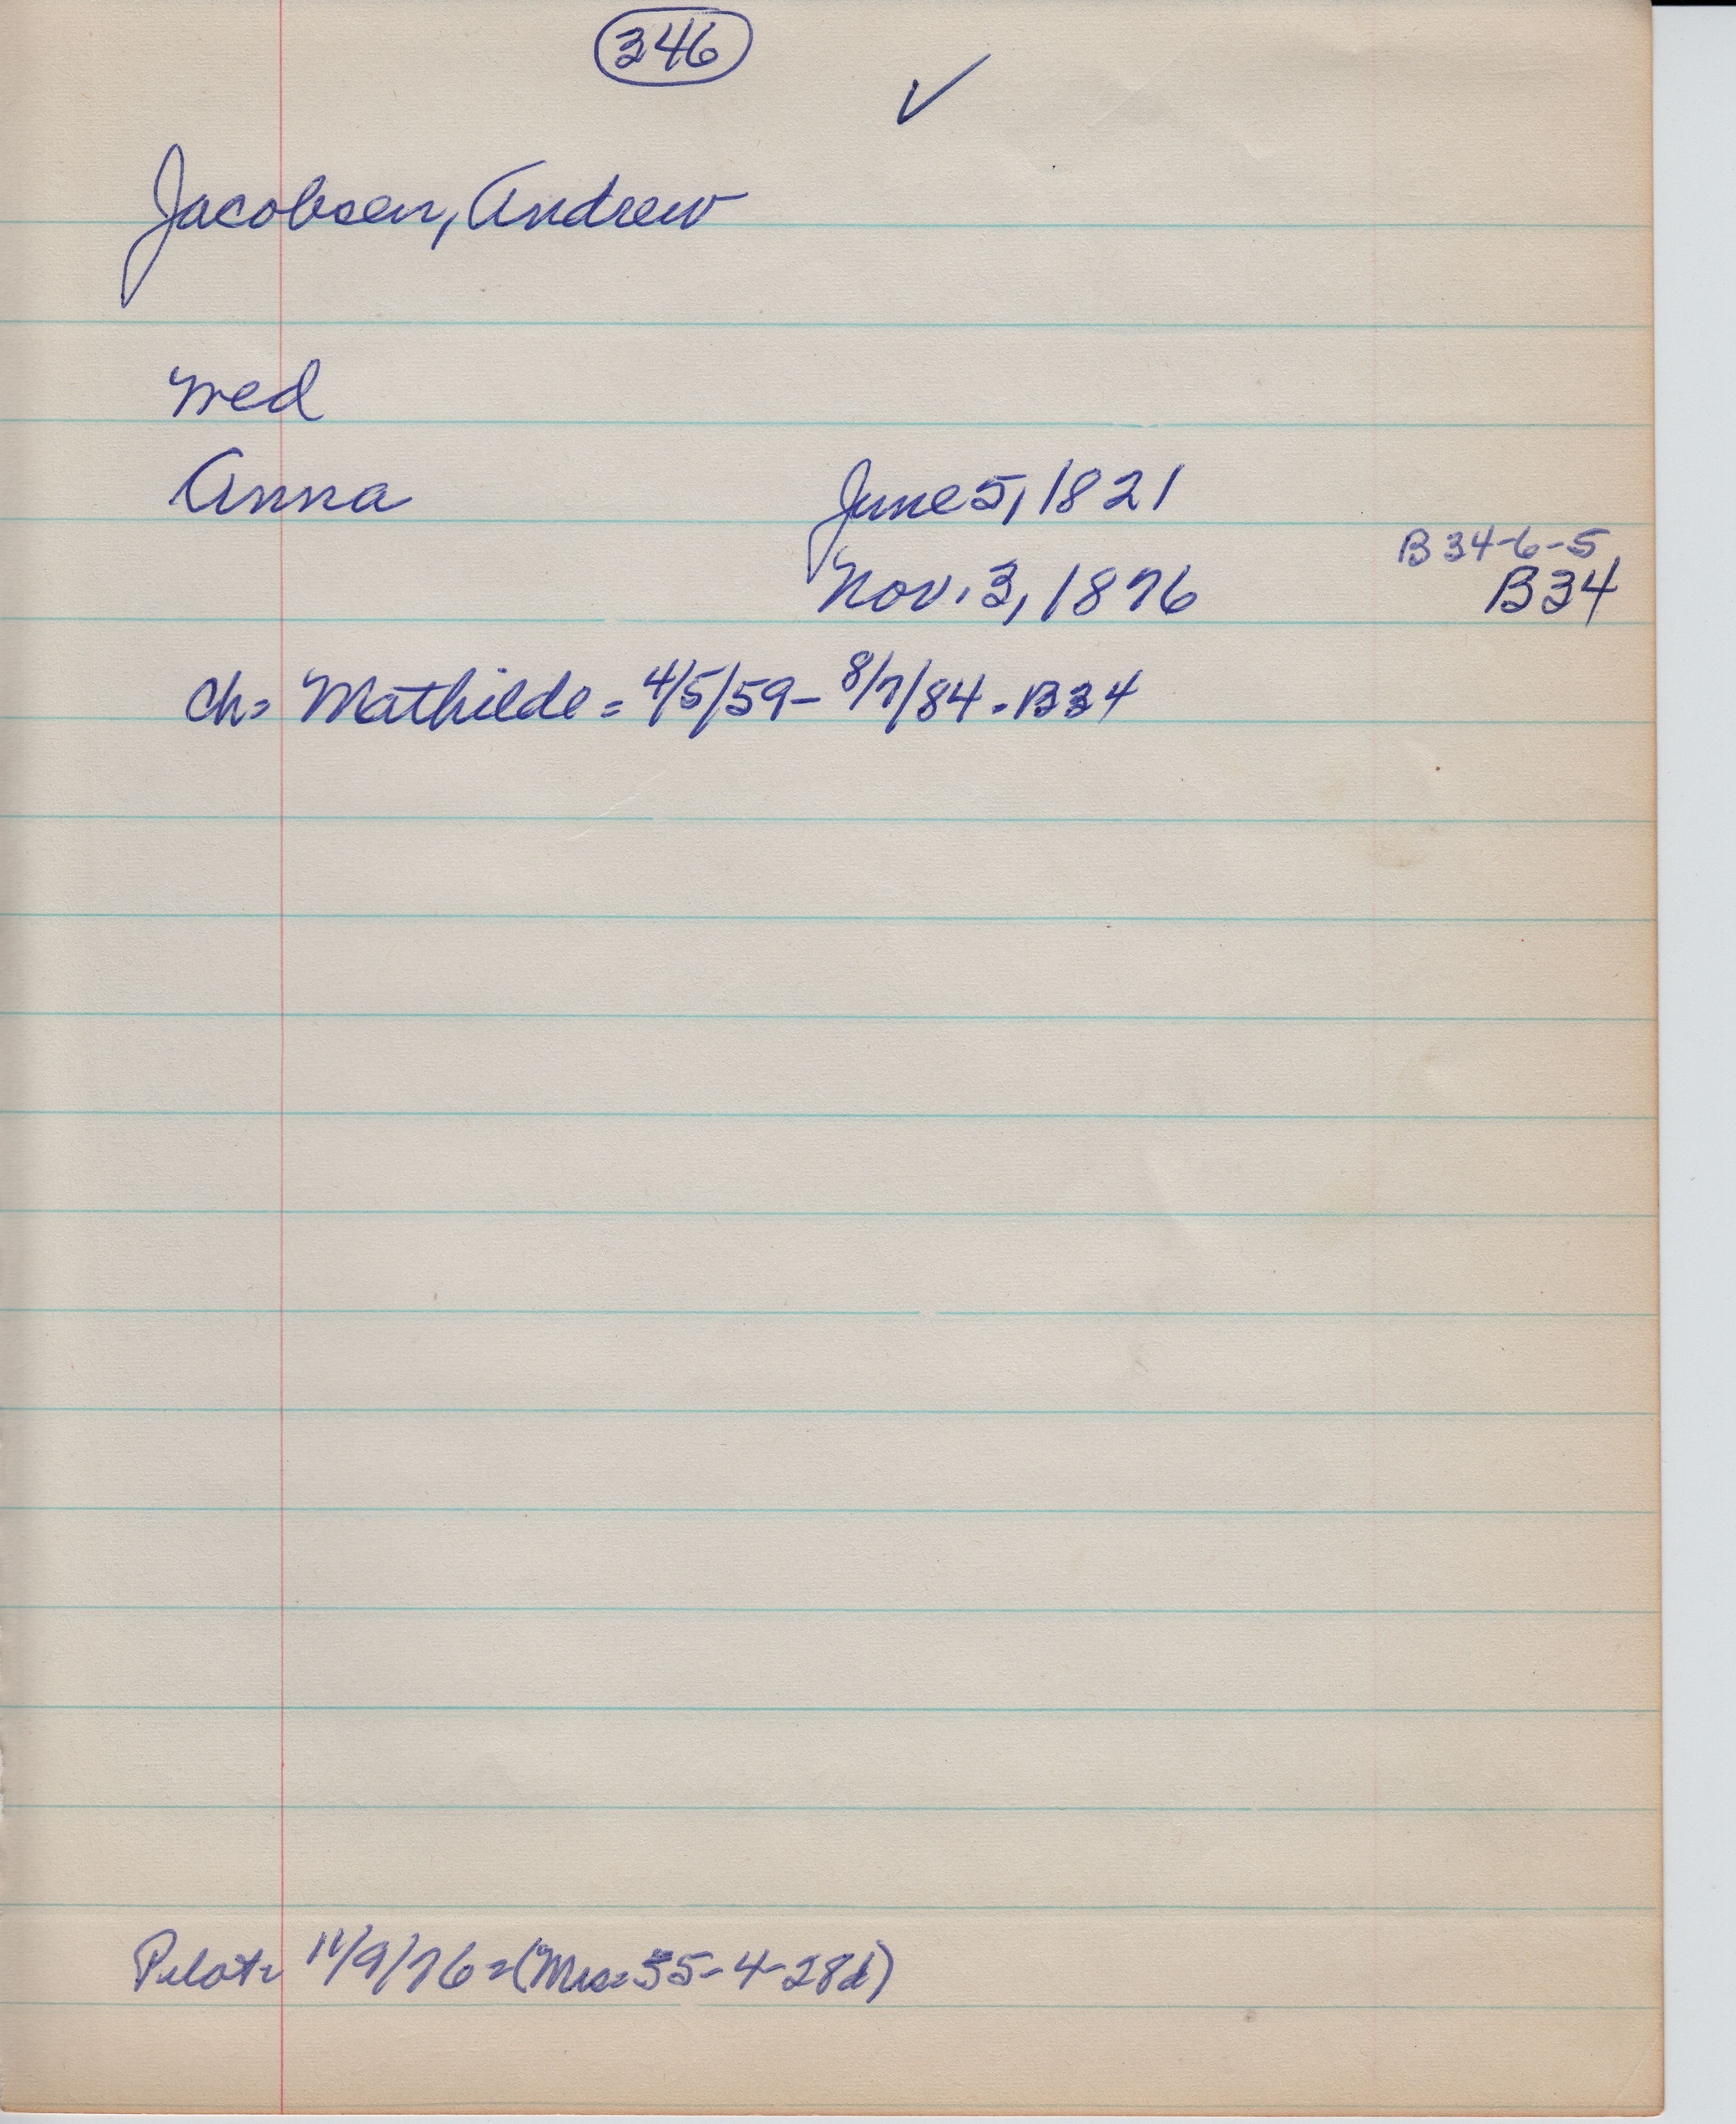 346
✓
Jacobsen, Andrew
wed
Anna June 5, 1821
B34-6-5
Nov. 3, 1876 B34
ch= Mathilde = 4/5/59 - 8/7/84 - B34
Pilot= 11/9/76 = (Mrs= 55-4-28d)